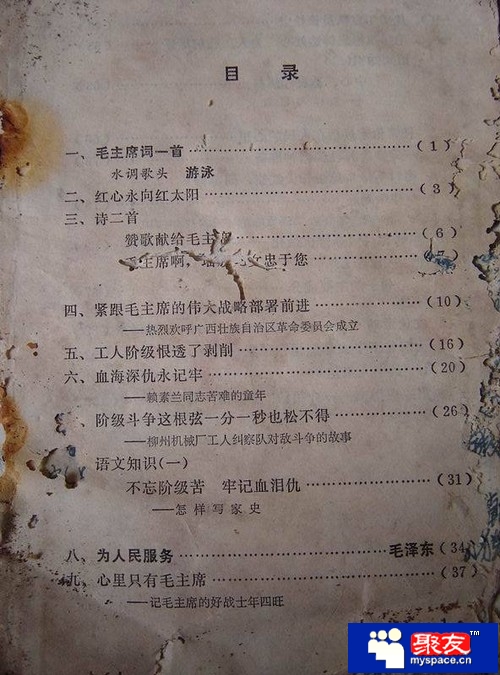 目 录
一、毛主席词一首……………………(1)
水调歌头 游泳
二、红心永向红太阳……………………(3)
三、诗二首
赞歌献给毛主席……………………(6)
主席啊, 忠于您……………………
四、紧跟毛主席的伟大战略部署前进……………………(10)
——热烈欢呼广西壮族自治区革命委员会成立
五、工人阶级恨透了剥削……………………(16)
六、血海深仇永记牢……………………(20)
——赖素兰同志苦难的童年
阶级斗争这根弦一分一秒也松不得……………………(26)
——柳州机械厂工人纠察队对敌斗争的故事
语文知识(一)
不忘阶级苦 牢记血泪仇……………………(31)
——怎样写家史
八、为人民服务……………………毛泽东(34)
九、心里只有毛主席……………………(37)
——记毛主席的好战士年四旺
聚友™
myspace.cn